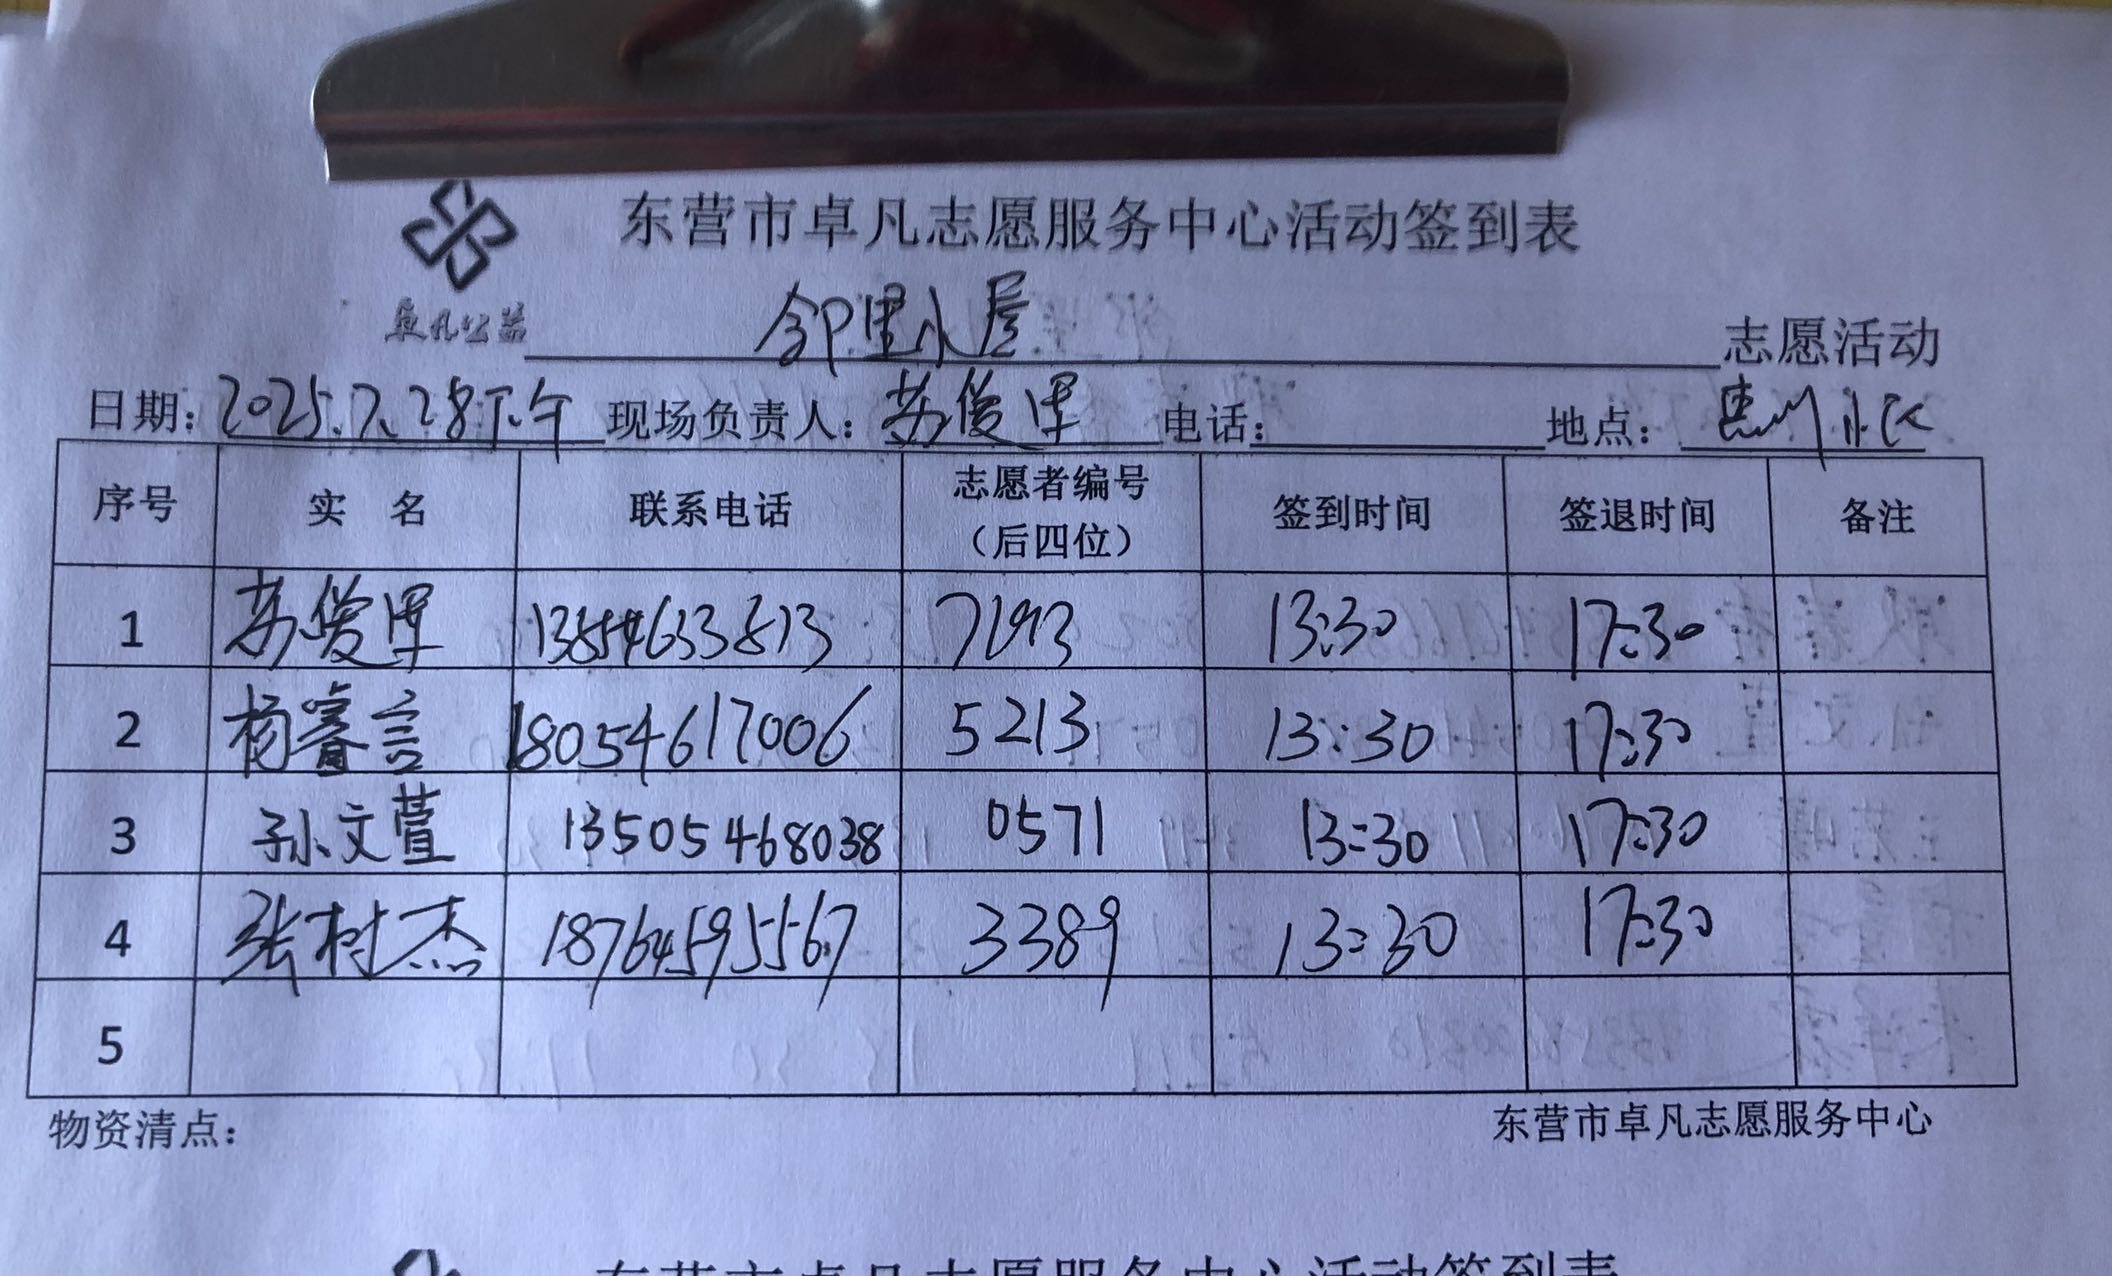 东营市卓凡志愿服务中心活动签到表
卓凡公益 邻里小屋 志愿活动
日期：2025.7.28下午 现场负责人：苏俊 电话： 地点：惠州小区
序号 实 名 联系电话 志愿者编号（后四位） 签到时间 签退时间 备注
1 苏俊 13854633813 7193 13:30 17:30
2 杨睿言 18054617006 5213 13:30 17:30
3 孙文萱 13505468038 0571 13:30 17:30
4 张树杰 18764595567 3389 13:30 17:30
5
物资清点： 东营市卓凡志愿服务中心
东营市卓凡志愿服务中心活动签到表